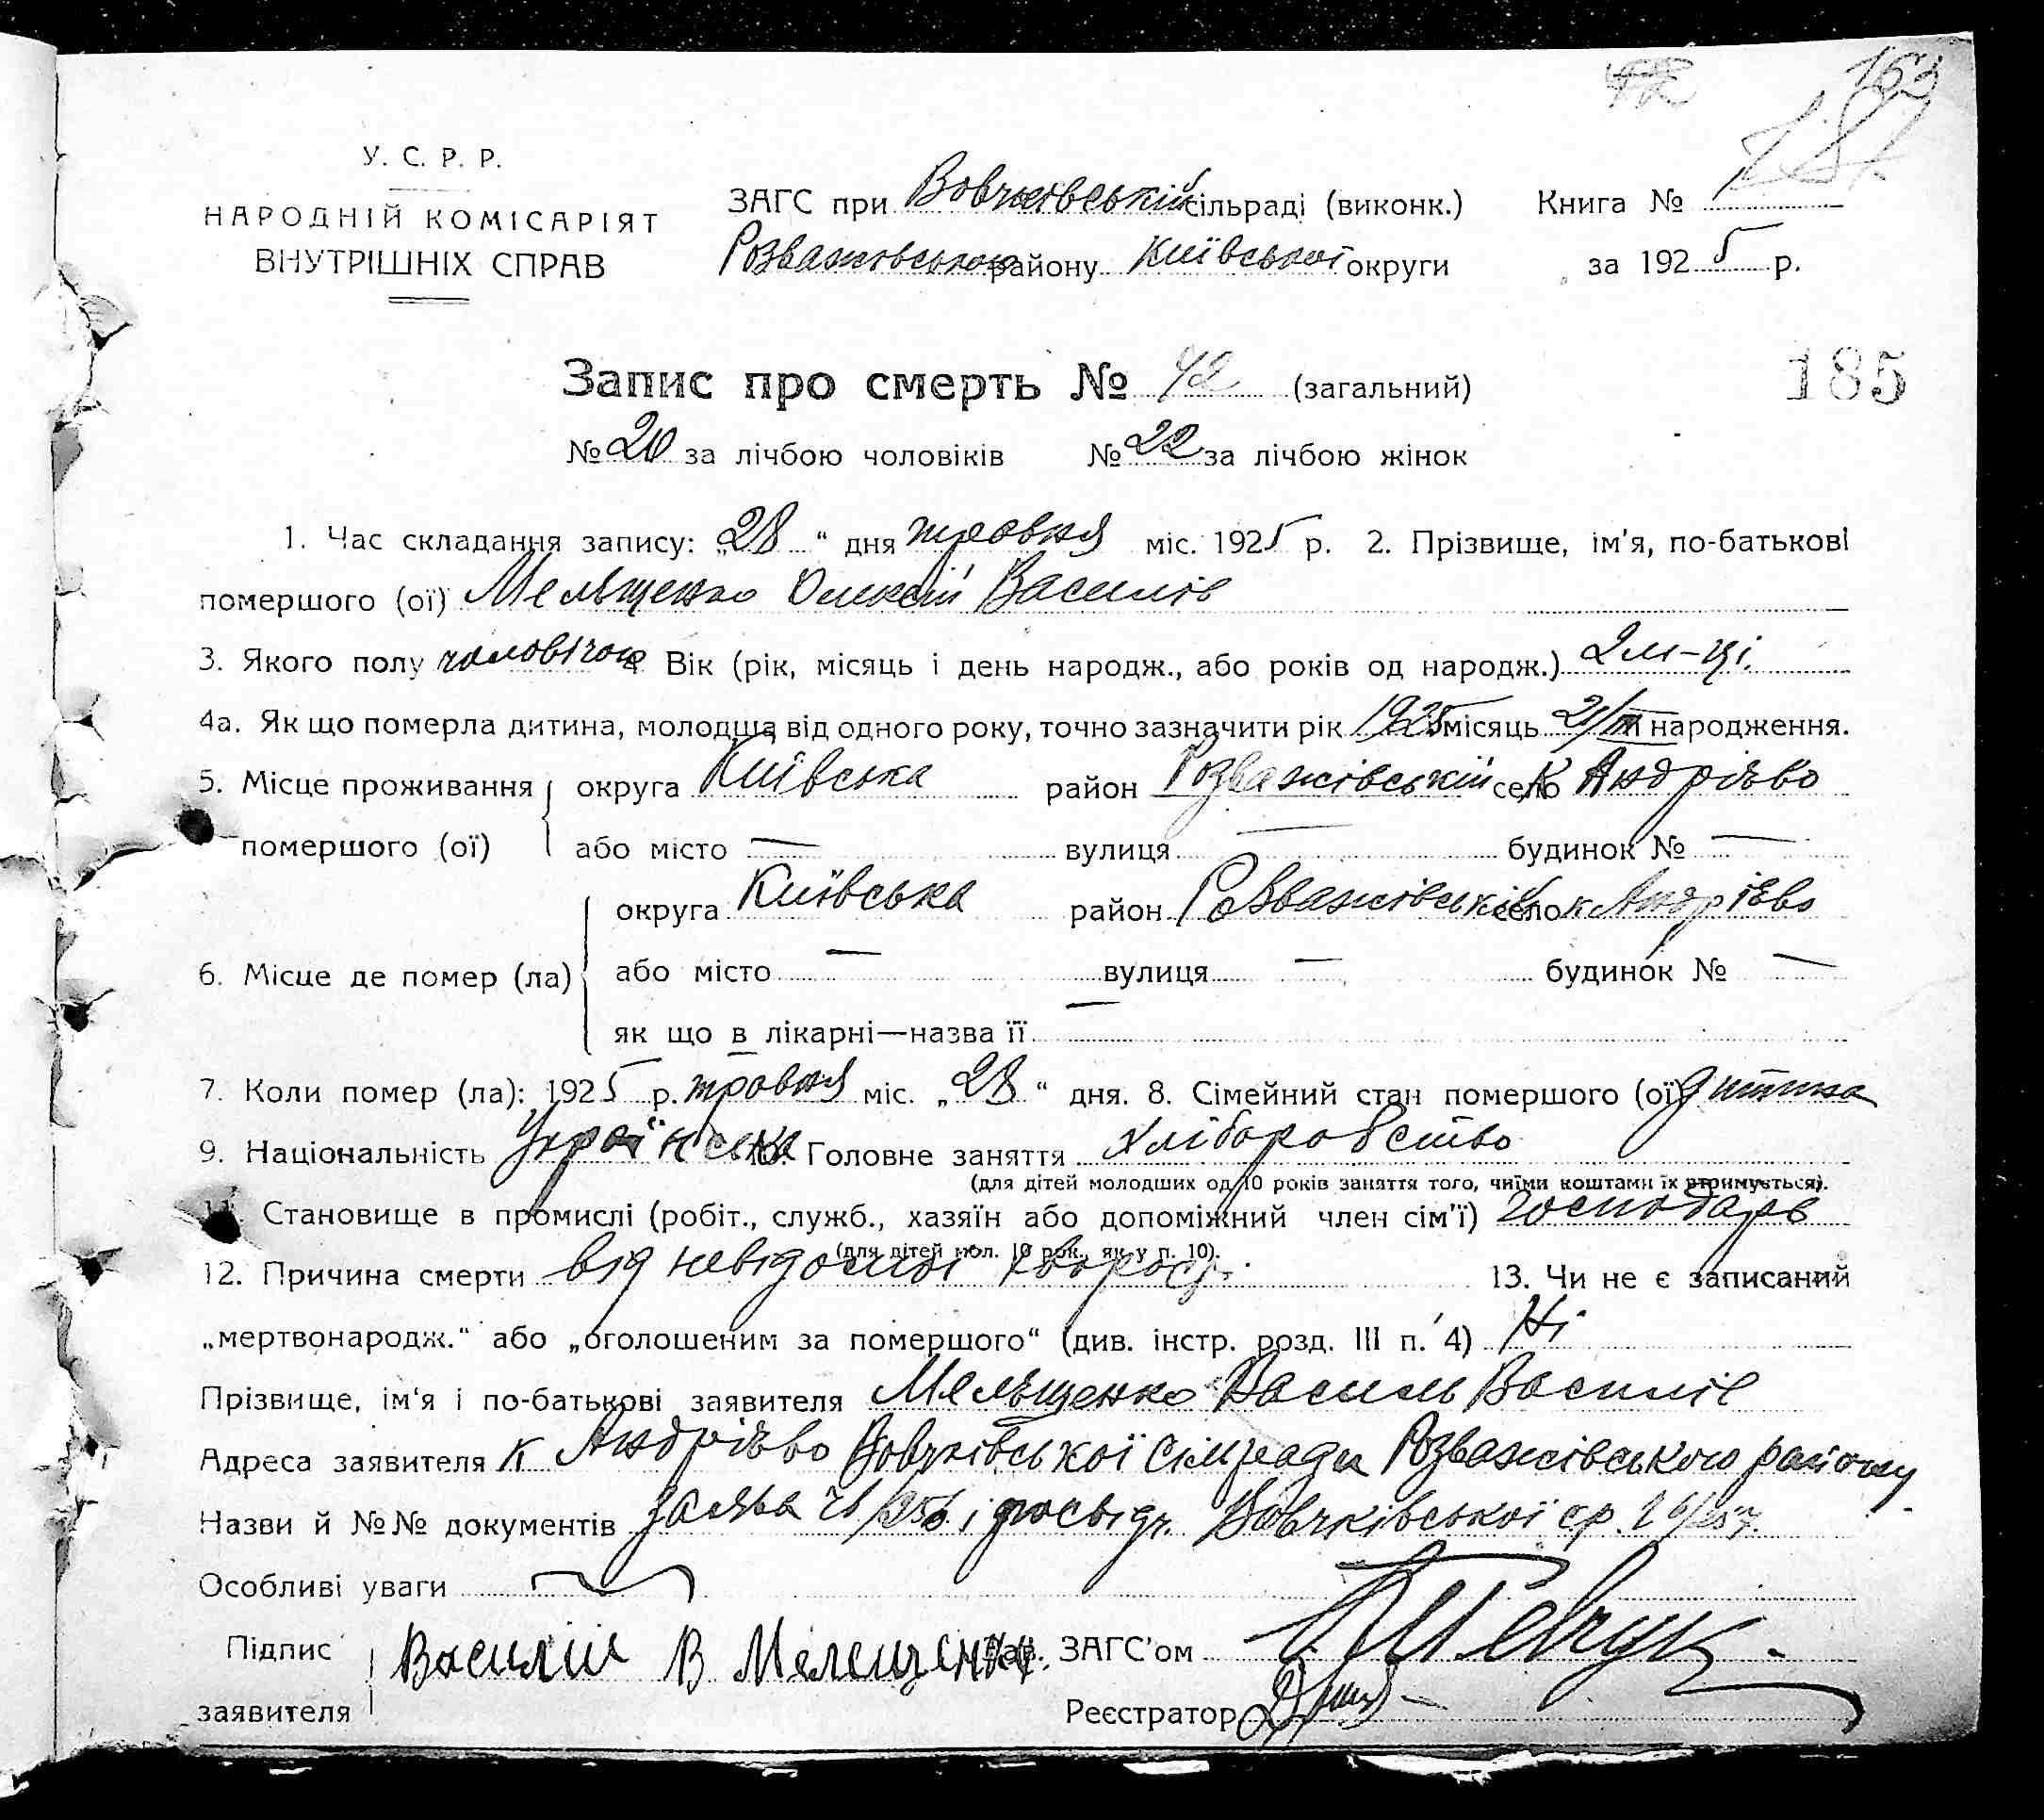 163
У. С. Р. Р.
НАРОДНІЙ КОМІСАРІЯТ
ВНУТРІШНІХ СПРАВ
ЗАГС при Вовчківській сільраді (виконк.) Книга №
Розважівського району Київської округи за 1925 р.
Запис про смерть № 42 (загальний)
185
№ 20 за лічбою чоловіків № 22 за лічбою жінок
1. Час складання запису: „28“ дня травня міс. 1925 р. 2. Прізвище, ім'я, по-батькові
помершого (ої) Мельщенко Олексій Василів
3. Якого полу чоловічого 4. Вік (рік, місяць і день народж., або років од народж.) 2 м-ці.
4а. Як що померла дитина, молодща від одного року, точно зазначити рік 1925 місяць народження.
5. Місце проживання округа Київська район Розважівській село К Андріѣво
помершого (ої) або місто — вулиця — будинок № —
округа Київська район Розважівській село к Андріѣво
6. Місце де помер (ла) або місто — вулиця — будинок № —
як що в лікарні—назва її —
7. Коли помер (ла): 1925 р. травня міс. „28“ дня. 8. Сімейний стан помершого (ої) дитина
9. Національність Українська 10. Головне заняття хліборобство
(для дітей молодших од 10 років заняття того, чиїми коштами їх утримується).
11. Становище в промислі (робіт., служб., хазяїн або допоміжний член сім'ї) господарь
(для дітей мол. 10 рок., як у п. 10).
12. Причина смерти від невідомої хвороби. 13. Чи не є записаний
„мертвонародж.“ або „оголошеним за помершого“ (див. інстр. розд. III п. 4) Ні
Прізвище, ім'я і по-батькові заявителя Мельщенко Василь Василів
Адреса заявителя к Андріѣво Вовчківської Сільради Розважівського району
Назви й №№ документів заява і посвідч. Вовчківської с.р.
Особливі уваги
Підпис Василій В Мелещенко. Зав. ЗАГС'ом Шевчук
заявителя Реєстратор